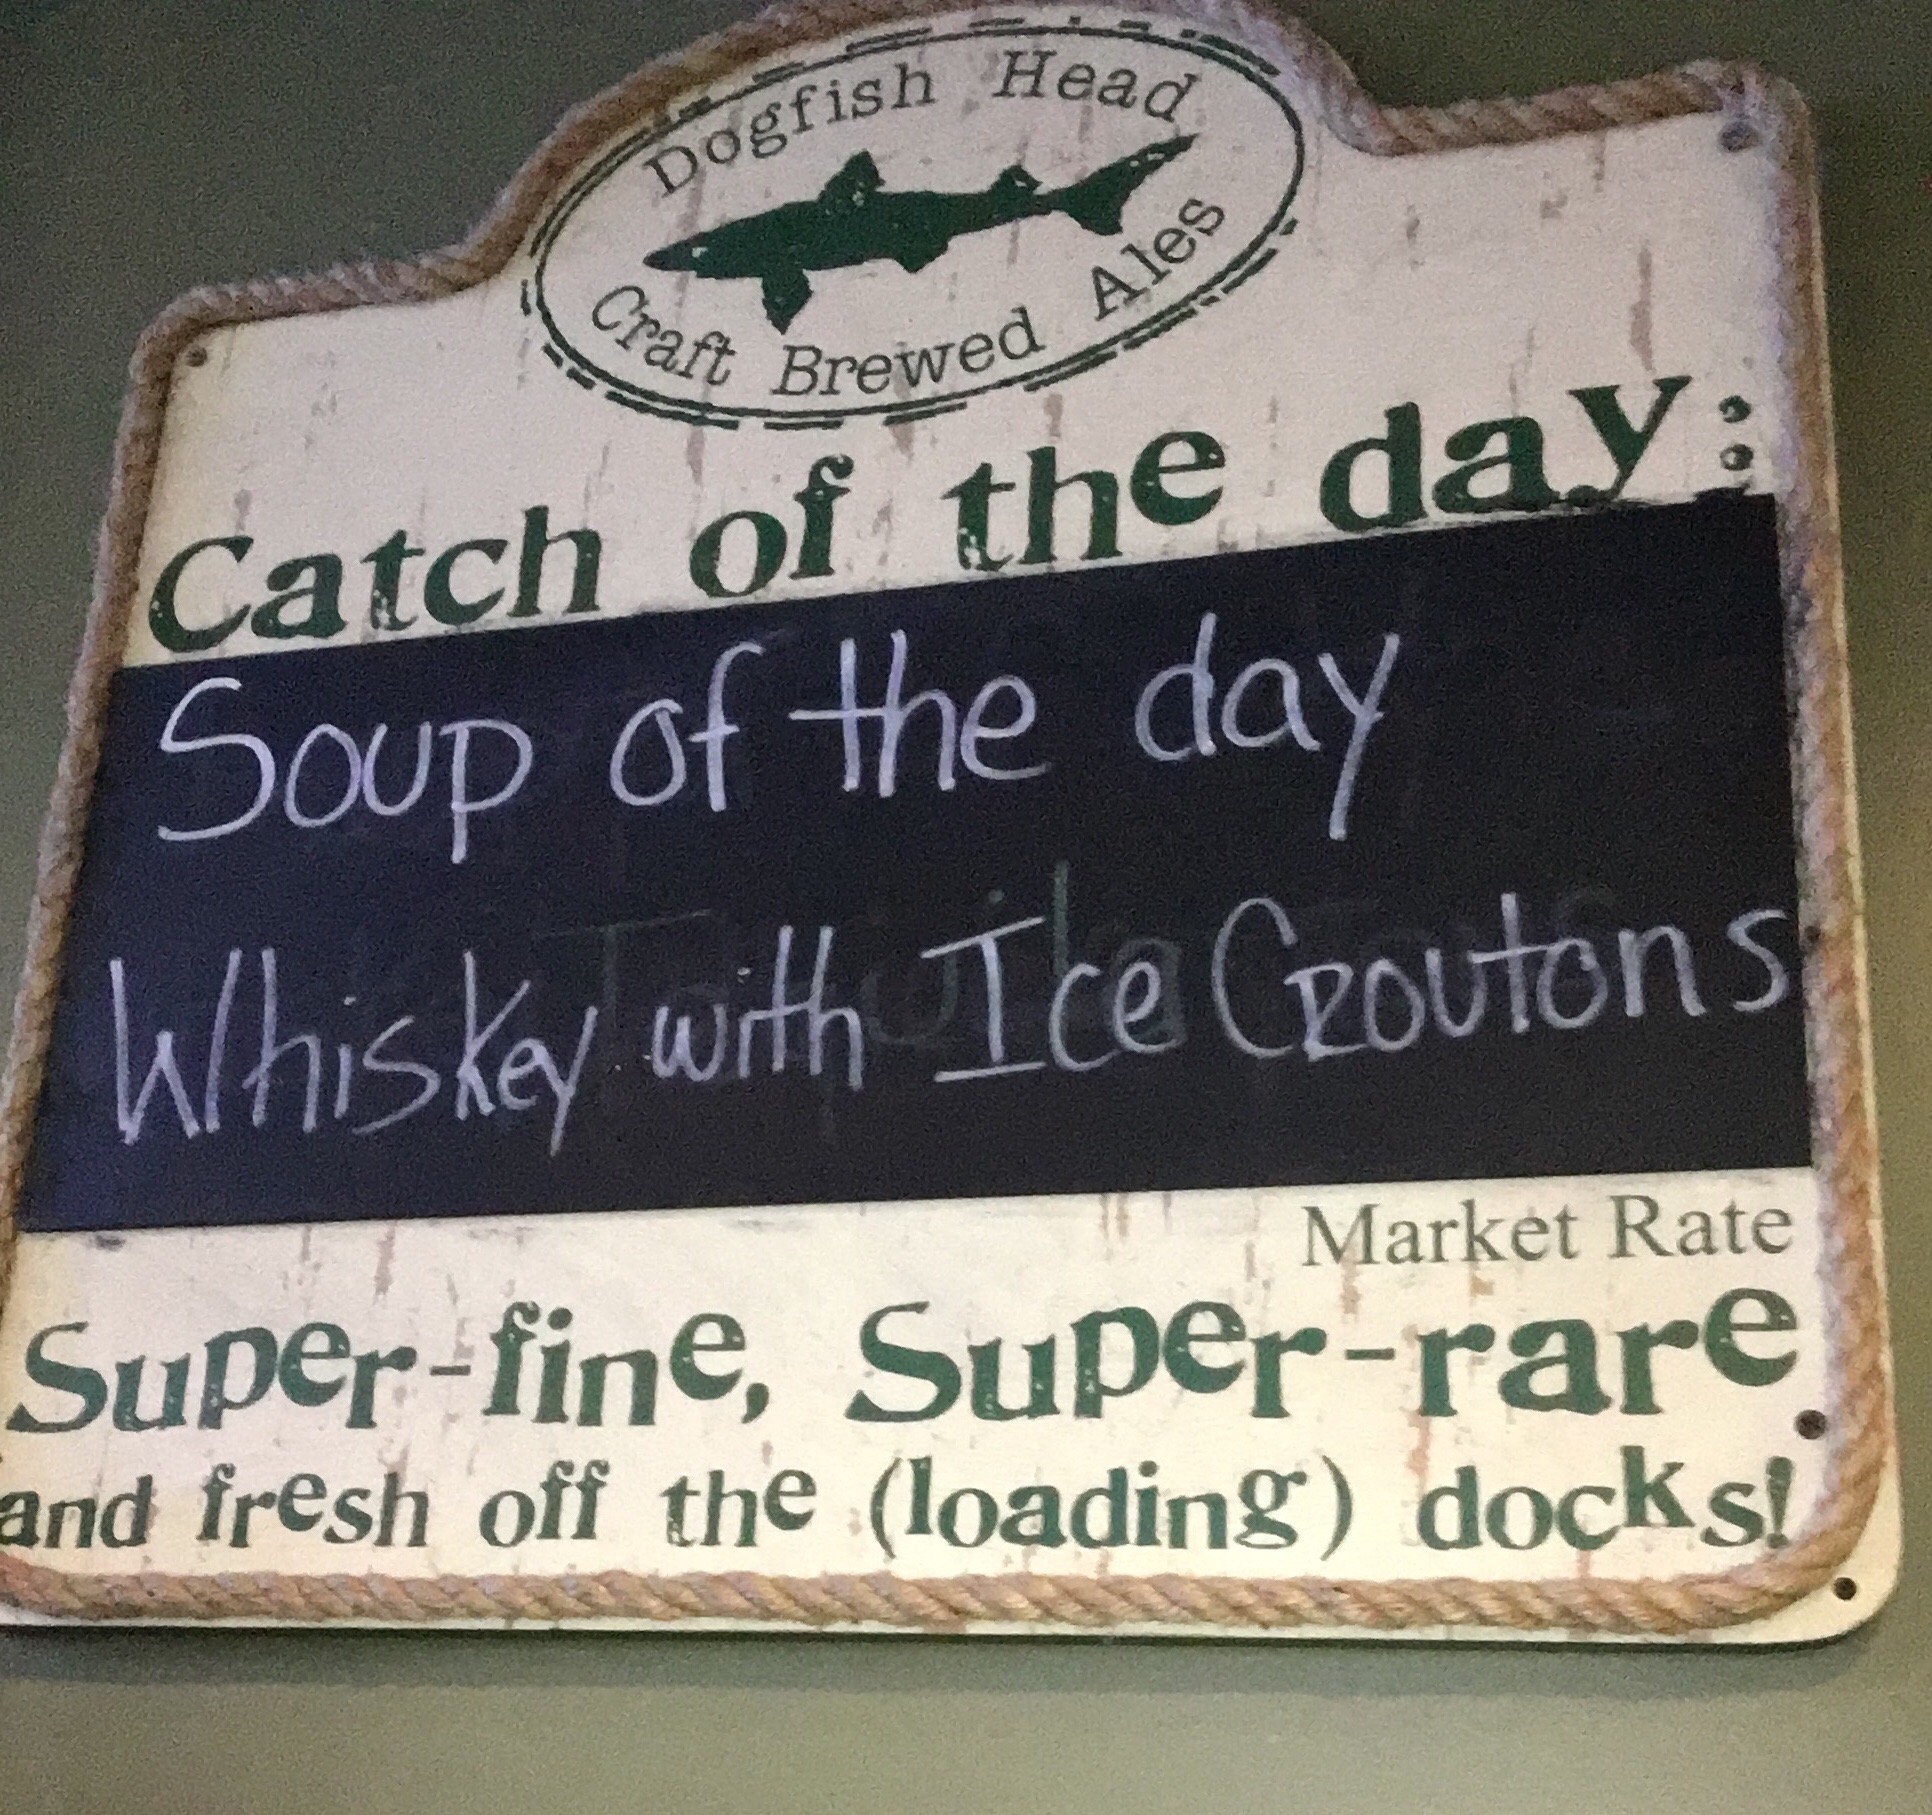 Dogfish Head
Craft Brewed Ales
Catch of the day:
Soup of the day
Whiskey with Ice Croutons
Market Rate
Super-fine, Super-rare
and fresh off the (loading) docks!